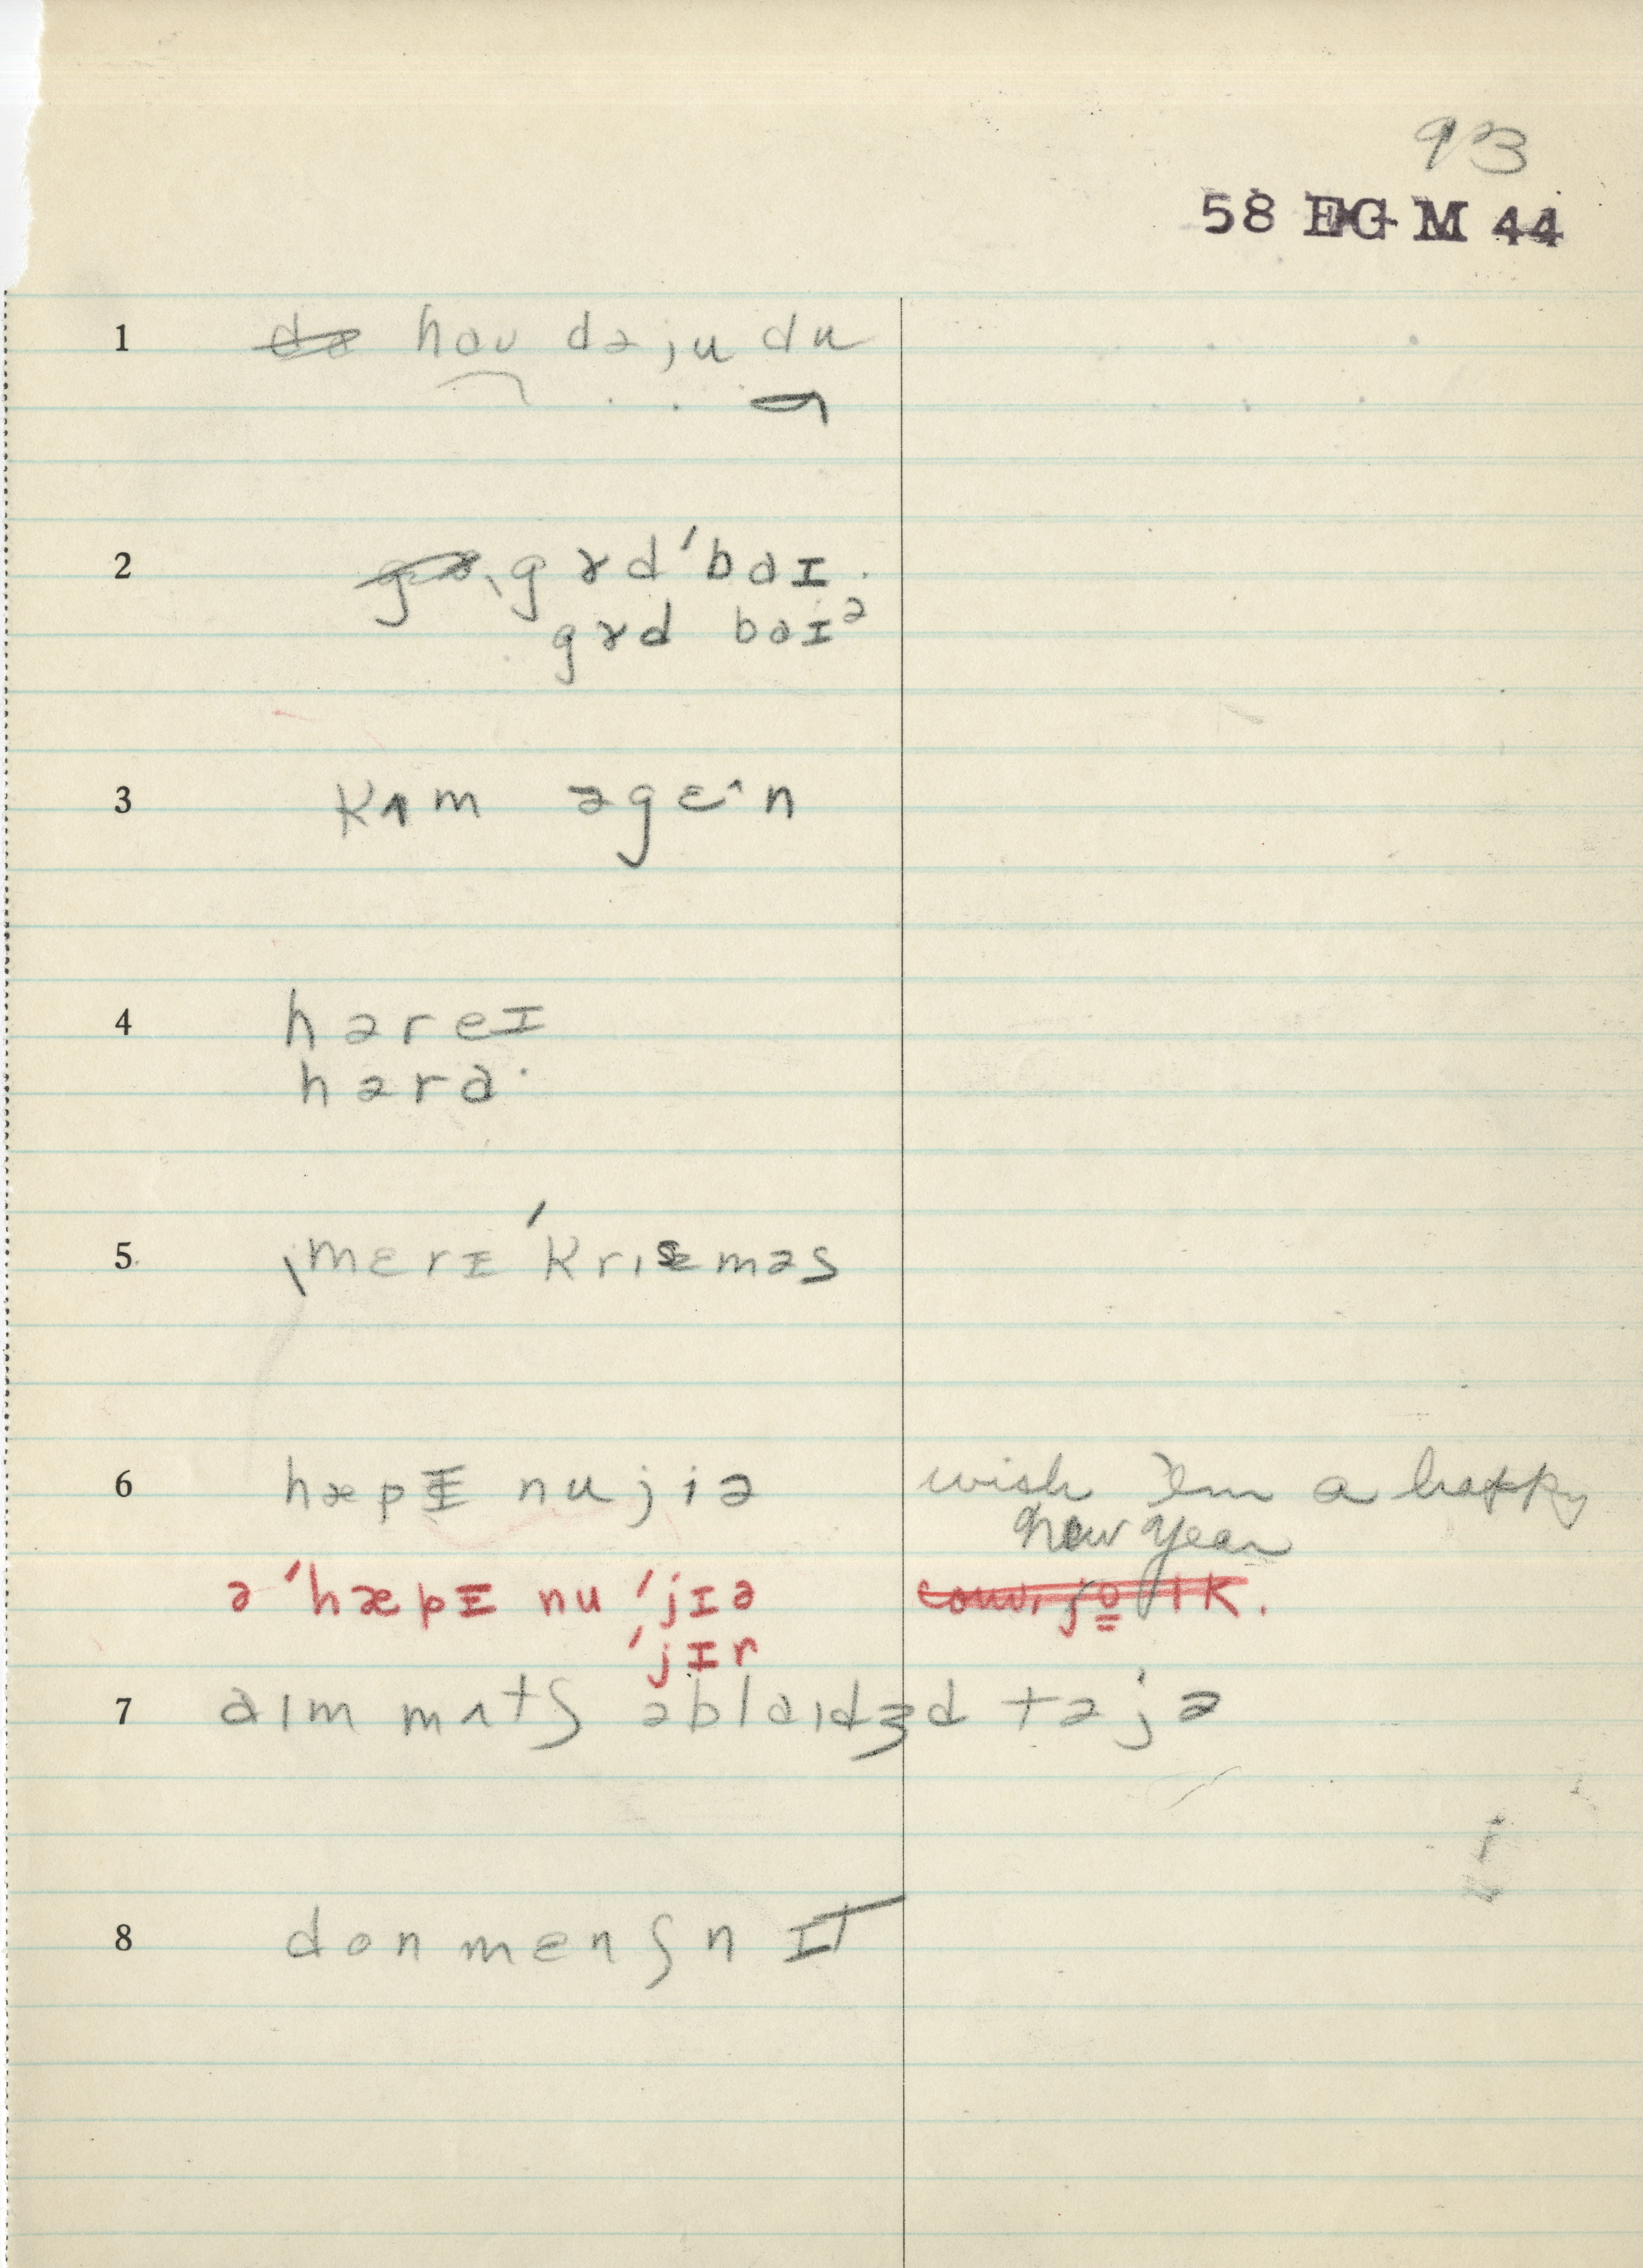 93
58 EG M 44
1 hɑu də ju du
2 gɤd ˈbɑɪ
gɤd bɑɪᵊ
3 kʌm əgɛ^n
4 həreɪ
hərɑ·
5 ˌmɛrɪ ˈkrɪsməs
6 hæpɪ nu jiə wish 'em a happy
new year
ə ˈhæpɪ nu ˈjɪə conv. jo IK.
ˈjɪr
7 aɪm mʌtʃ əblaɪdʒd tə jə
8 don menʃn ɪt